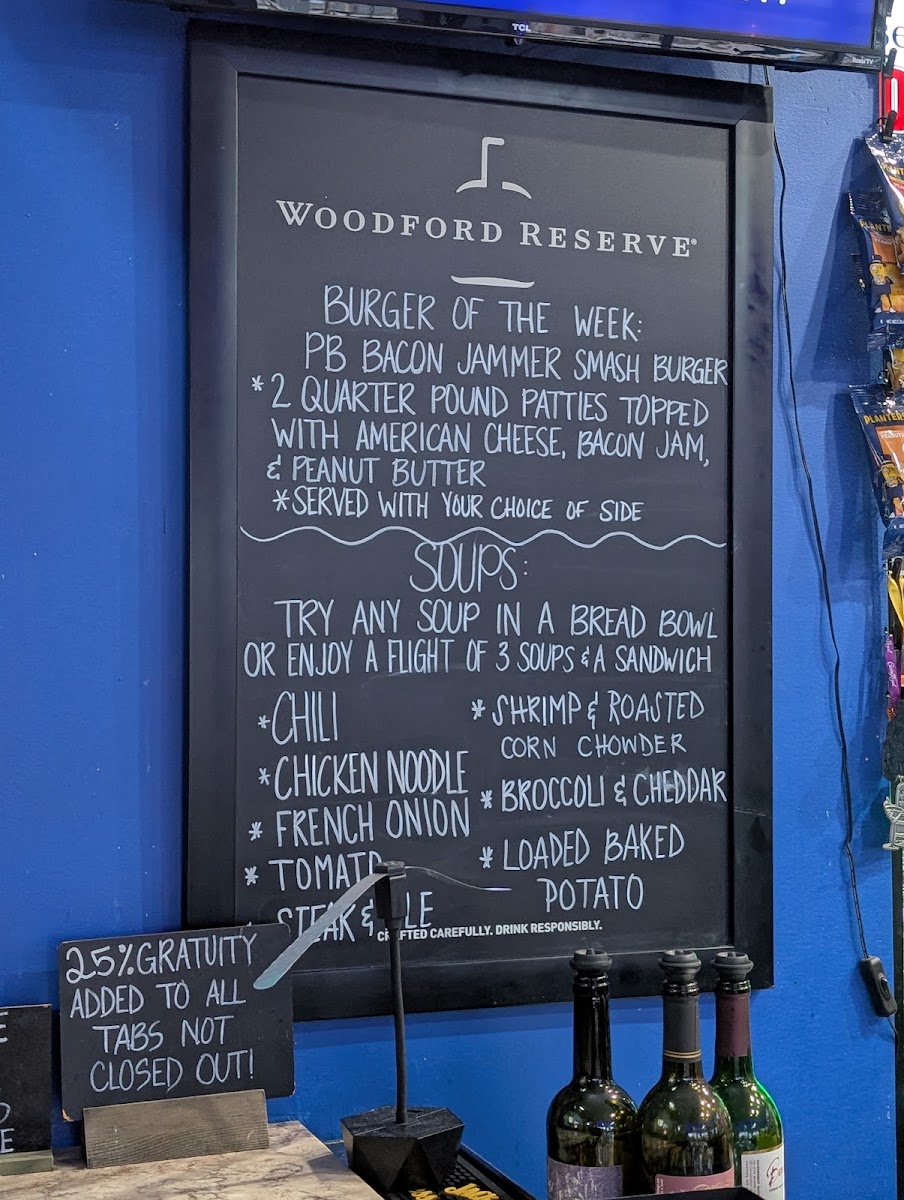 TCL
Roku TV
WOODFORD RESERVE®
BURGER OF THE WEEK:
PB BACON JAMMER SMASH BURGER
*2 QUARTER POUND PATTIES TOPPED
WITH AMERICAN CHEESE, BACON JAM,
& PEANUT BUTTER
*SERVED WITH YOUR CHOICE OF SIDE
SOUPS:
TRY ANY SOUP IN A BREAD BOWL
OR ENJOY A FLIGHT OF 3 SOUPS & A SANDWICH
*CHILI
*CHICKEN NOODLE
* FRENCH ONION
* TOMATO
STEAK &
*SHRIMP & ROASTED
CORN CHOWDER
* BROCCOLI & CHEDDAR
* LOADED BAKED
POTATO
CRAFTED CAREFULLY. DRINK RESPONSIBLY.
25% GRATUITY
ADDED TO ALL
TABS NOT
CLOSED OUT!
PLANTERS